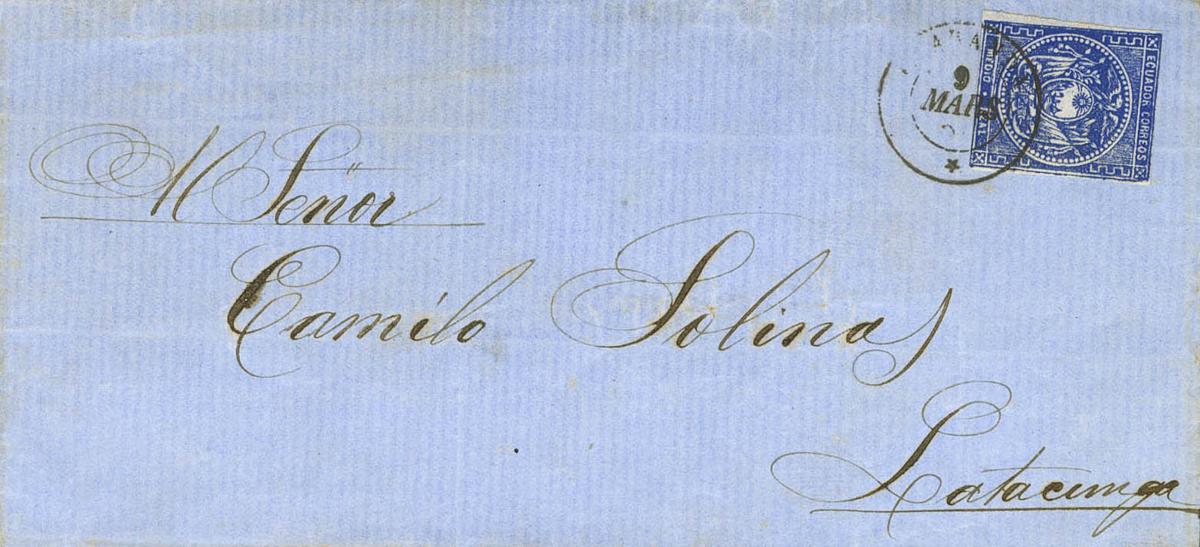 9
MARS
ECUADOR CORREOS
MEDIO REAL
Señor
Camilo Solinas
Latacunga